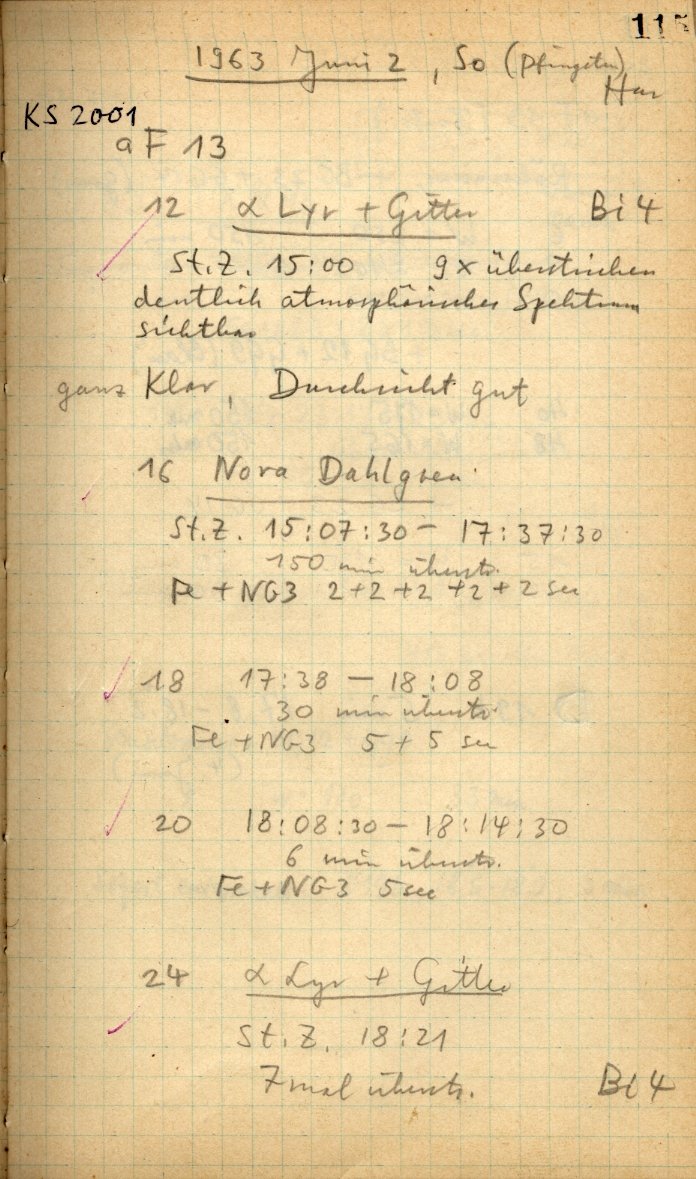 115
1963 Juni 2, So (Pfingsten)
Har
KS 2001
aF 13
12 α Lyr + Gitter Bi 4
St.Z. 15:00 9x überstrichen
deutlich atmosphärisches Spektrum
sichtbar
ganz Klar, Durchsicht gut
16 Nova Dahlgren
St.Z. 15:07:30 – 17:37:30
150 min überstr.
Fe + NG3 2+2+2+2+2 sec
18 17:38 – 18:08
30 min überstr.
Fe + NG3 5+5 sec
20 18:08:30 – 18:14:30
6 min überstr.
Fe + NG3 5 sec
24 α Lyr + Gitter
St.Z. 18:21
7 mal überstr. Bi 4